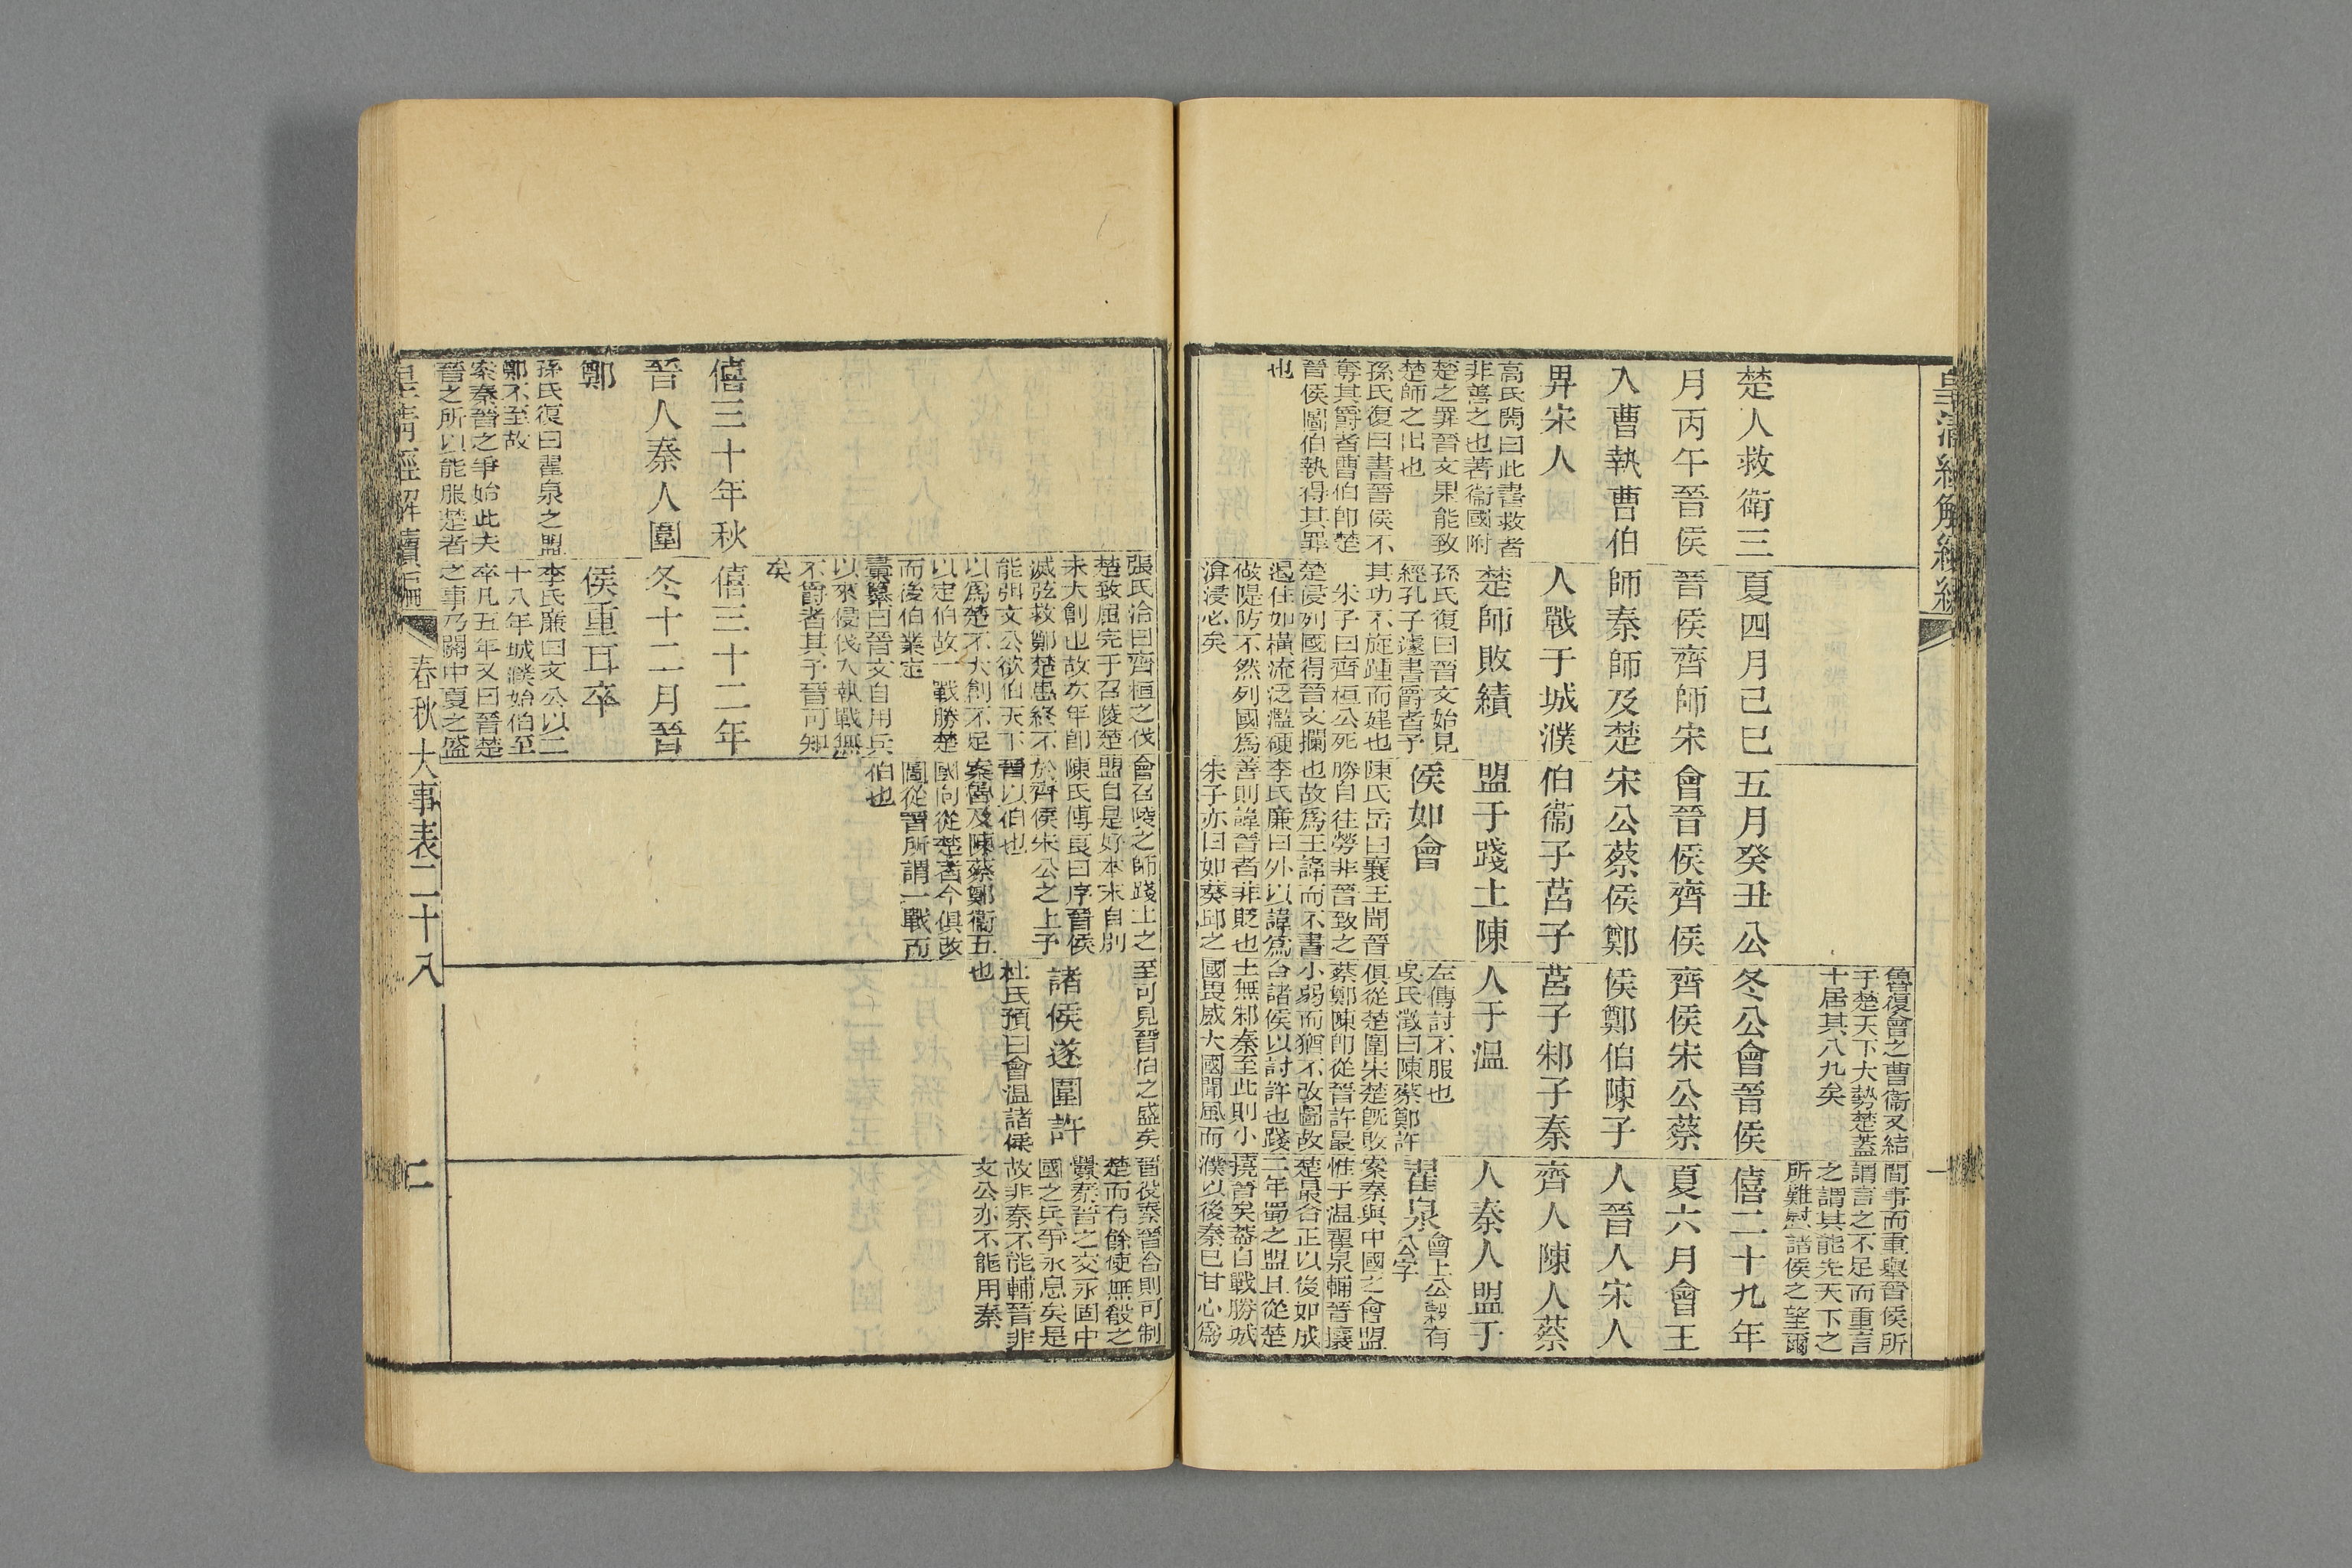 皇清經解續編
一
楚人救衛三
月丙午晉侯
入曹執曹伯
畀宋人
高氏閌曰此書救者
非善之也著衞國附
楚之罪晉文果能致
楚師之出也
孫氏復曰書晉侯不
奪其爵者曹伯卽楚
晉侯圖伯執得其罪
也
夏四月己巳
晉侯齊師宋
師秦師及楚
人戰于城濮
楚師敗績
孫氏復曰晉文始見
經孔子遽書爵者予
其功不旋踵而建也
朱子曰齊桓公死
楚侵列國得晉文攔
遏住如橫流泛濫硬
做隄防不然列國爲
渰浸必矣
五月癸丑公
會晉侯齊侯
宋公蔡侯鄭
伯衞子莒子
盟于踐土陳
侯如會
陳氏岳曰襄王聞晉
勝自往勞非晉致之
也故爲王諱而不書
李氏廉曰外以諱爲
善則諱晉者非貶也
朱子亦曰如葵邱之
魯復會之曹衞又結
于楚天下大勢楚蓋
十居其八九矣
冬公會晉侯
齊侯宋公蔡
侯鄭伯陳子
莒子邾子秦
人于温
左傳討不服也
吳氏澂曰陳蔡鄭許
俱從楚圍宋楚旣敗
蔡鄭陳卽從晉許最
小弱而猶不改圖故
合諸侯以討許也踐
土無邾秦至此則小
國畏威大國聞風而
間事而重舉晉侯所
謂言之不足而重言
之謂其能先天下之
所難慰諸侯之望爾
僖二十九年
夏六月會王
人晉人宋人
齊人陳人蔡
人秦人盟于
翟泉會上公穀有公字
案秦與中國之會盟
惟于温翟泉輔晉攘
楚最合正以後如成
二年蜀之盟且從楚
撓晉矣蓋自戰勝城
濮以後秦已甘心爲
僖三十年秋
晉人秦人圍
鄭
孫氏復曰翟泉之盟
鄭不至故
案秦晉之爭始此夫
晉之所以能服楚者
張氏洽曰齊桓之伐
楚致屈完于召陵楚
未大創也故次年卽
滅弦救鄭楚患終不
能弭文公欲伯天下
以爲楚不大創不足
以定伯故一戰勝楚
而後伯業定
彙纂曰晉文自用兵
以來侵伐入執戰無
不爵者其予晉可知
矣
僖三十二年
冬十二月晉
侯重耳卒
李氏廉曰文公以二
十八年城濮始伯至
卒凡五年又曰晉楚
之事乃關中夏之盛
會召陵之師踐土之
盟自是好本末自別
陳氏傅良曰序晉侯
於齊侯宋公之上予
晉以伯也
案魯及陳蔡鄭衞五
國向從楚者今俱改
圖從晉所謂一戰而
伯也
至可見晉伯之盛矣
諸侯遂圍許
杜氏預曰會温諸侯
也
晉役秦晉合則可制
楚而有餘使無殽之
釁秦晉之交永固中
國之兵爭永息矣是
故非秦不能輔晉非
文公亦不能用秦
皇清經解續編
春秋大事表二十八
二